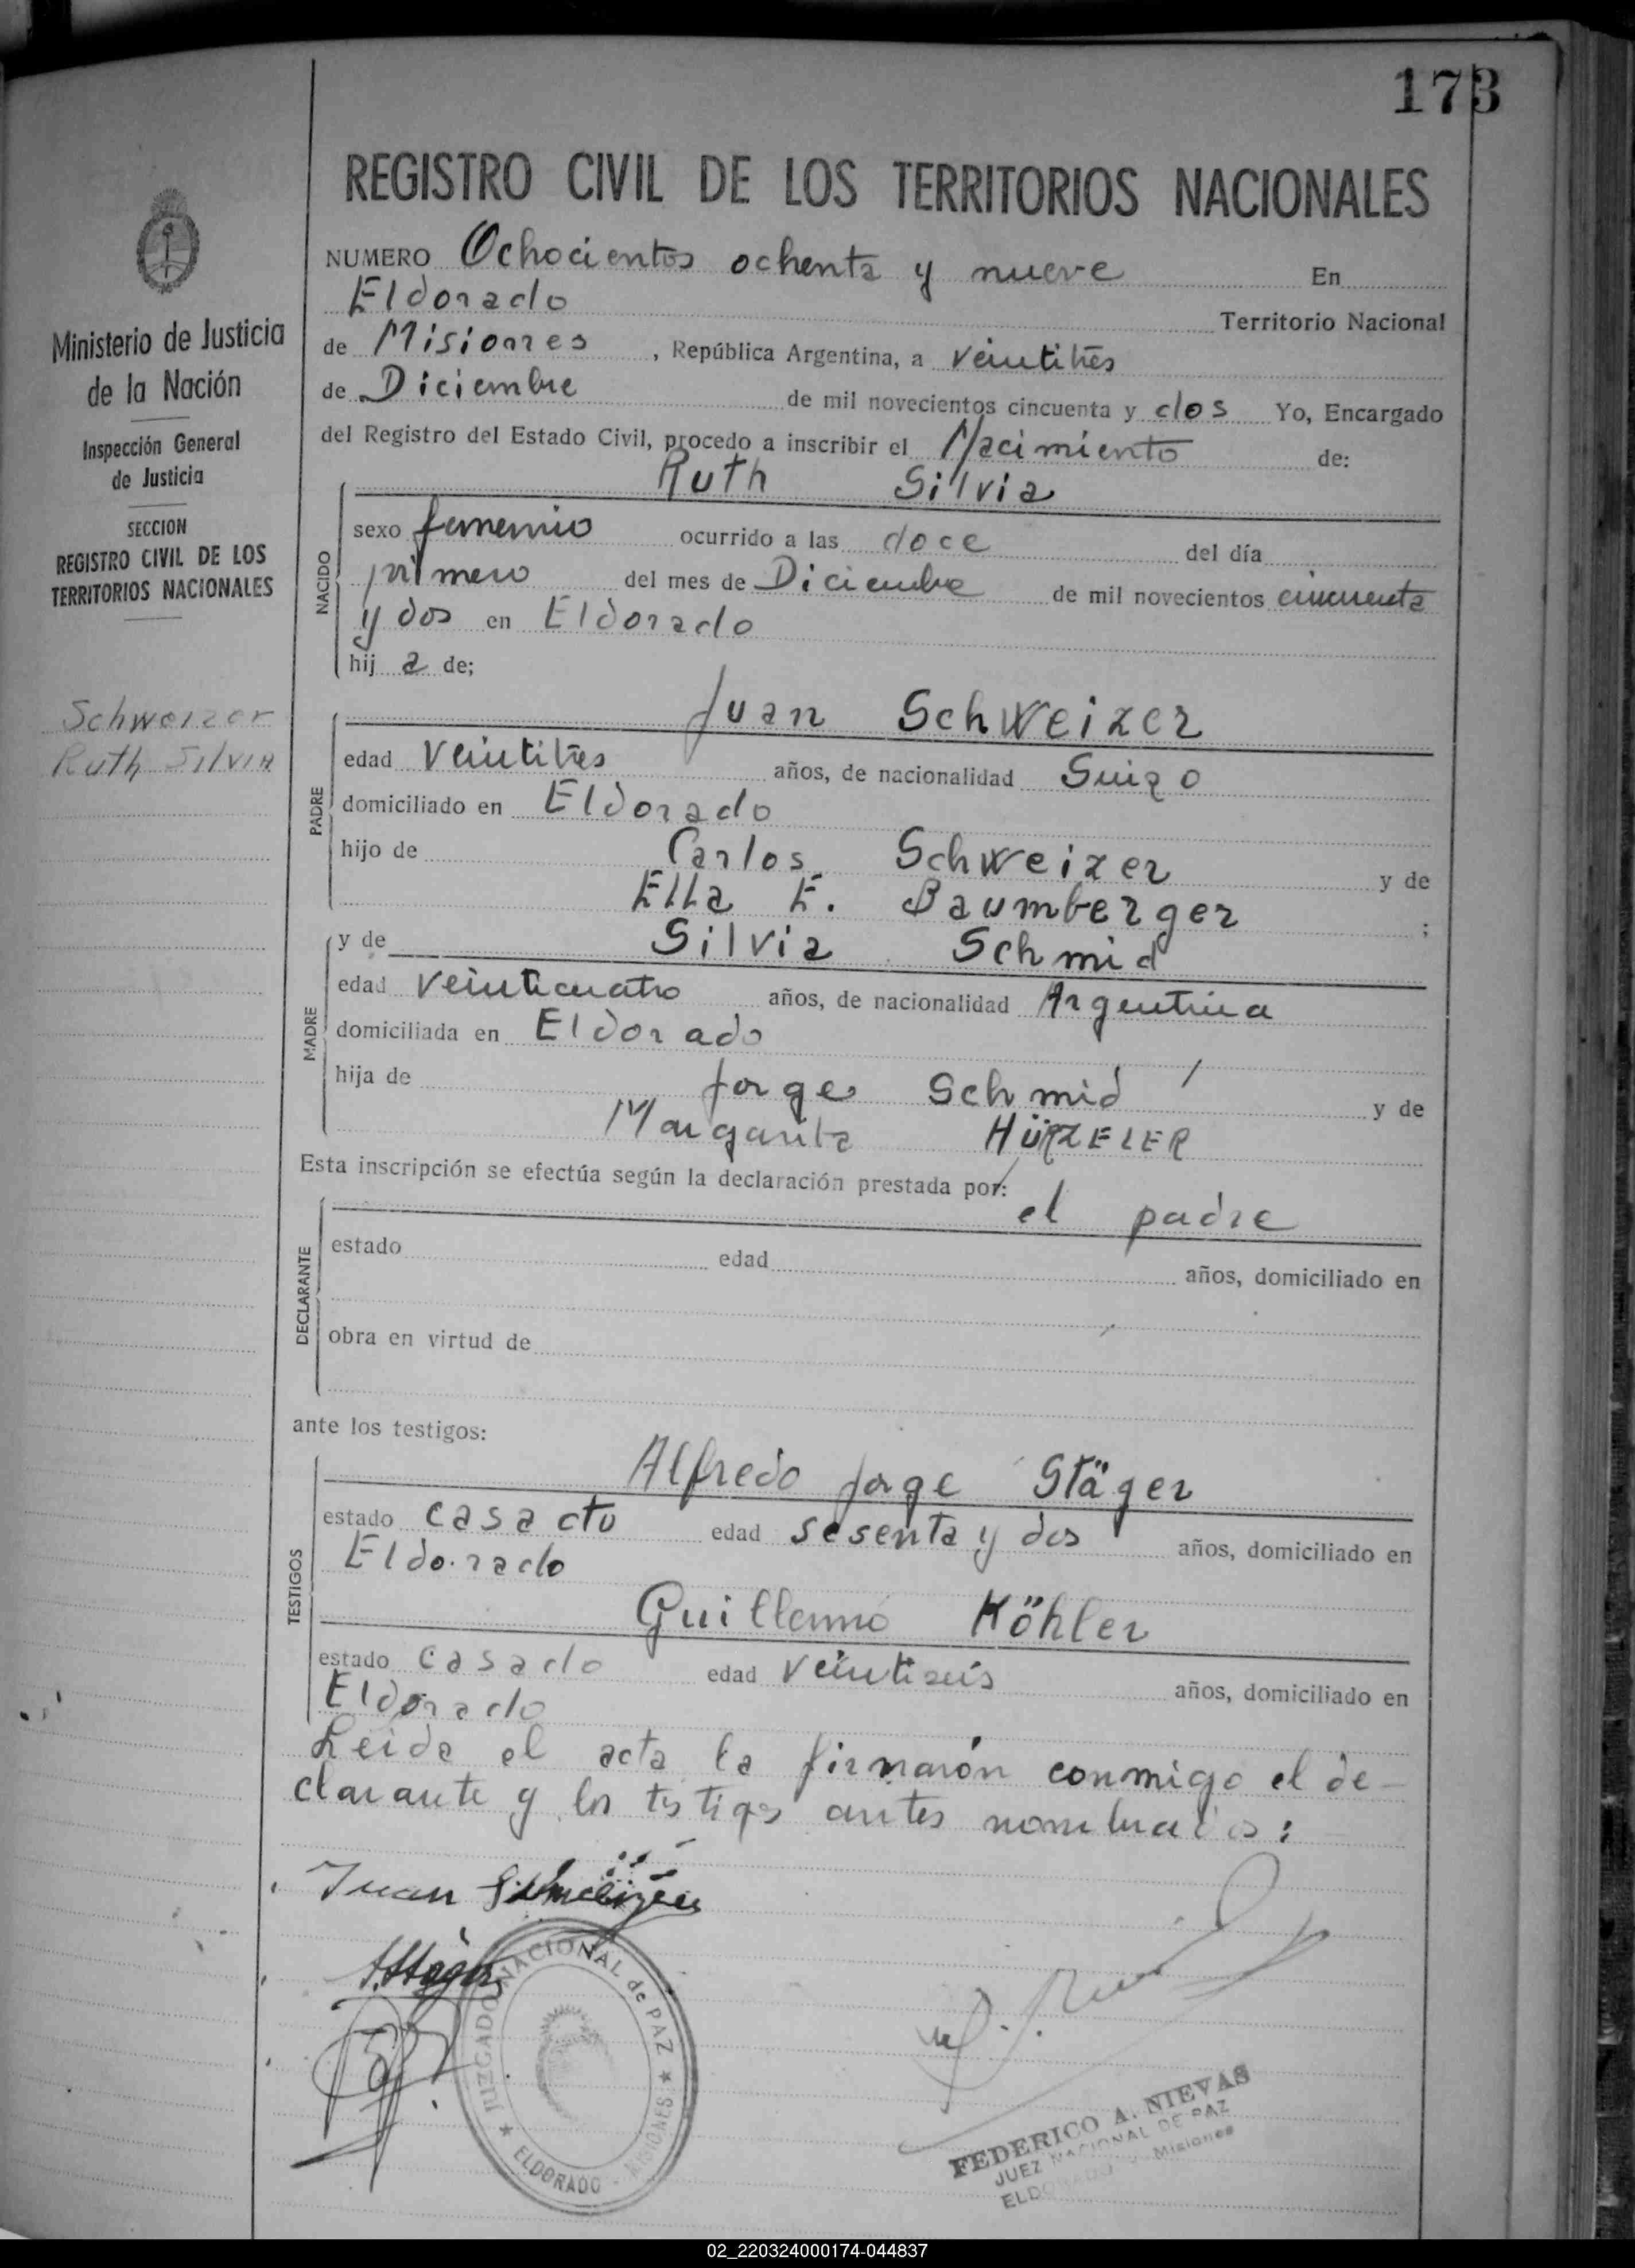 173
REGISTRO CIVIL DE LOS TERRITORIOS NACIONALES
Ministerio de Justicia
de la Nación
Inspección General
de Justicia
SECCION
REGISTRO CIVIL DE LOS
TERRITORIOS NACIONALES
Schweizer
Ruth Silvia
NUMERO Ochocientos ochenta y nueve En
Eldorado Territorio Nacional
de Misiones, República Argentina, a veintitrés
de Diciembre de mil novecientos cincuenta y dos Yo, Encargado
del Registro del Estado Civil, procedo a inscribir el Nacimiento de:
Ruth Silvia
NACIDO
sexo femenino ocurrido a las doce del día
primero del mes de Diciembre de mil novecientos cincuenta
y dos en Eldorado
hij a de;
Juan Schweizer
PADRE
edad veintitrés años, de nacionalidad Suizo
domiciliado en Eldorado
hijo de Carlos Schweizer y de
Ella E. Baumberger ;
y de Silvia Schmid
MADRE
edad veinticuatro años, de nacionalidad Argentina
domiciliada en Eldorado
hija de Jorge Schmid y de
Margarita HÜRZELER
Esta inscripción se efectúa según la declaración prestada por:
el padre
DECLARANTE
estado edad años, domiciliado en
obra en virtud de
ante los testigos:
Alfredo Jorge Stäger
TESTIGOS
estado casado edad sesenta y dos años, domiciliado en
Eldorado
Guillermo Köhler
estado casado edad veintiseis años, domiciliado en
Eldorado
Leida el acta la firmarón conmigo el de-
clarante y los testigos antes nombrados:
Juan Schweizer
A. Stäger
JUZGADO NACIONAL de PAZ
ELDORADO - MISIONES
FEDERICO A. NIEVAS
JUEZ NACIONAL DE PAZ
ELDORADO Misiones
02_220324000174-044837